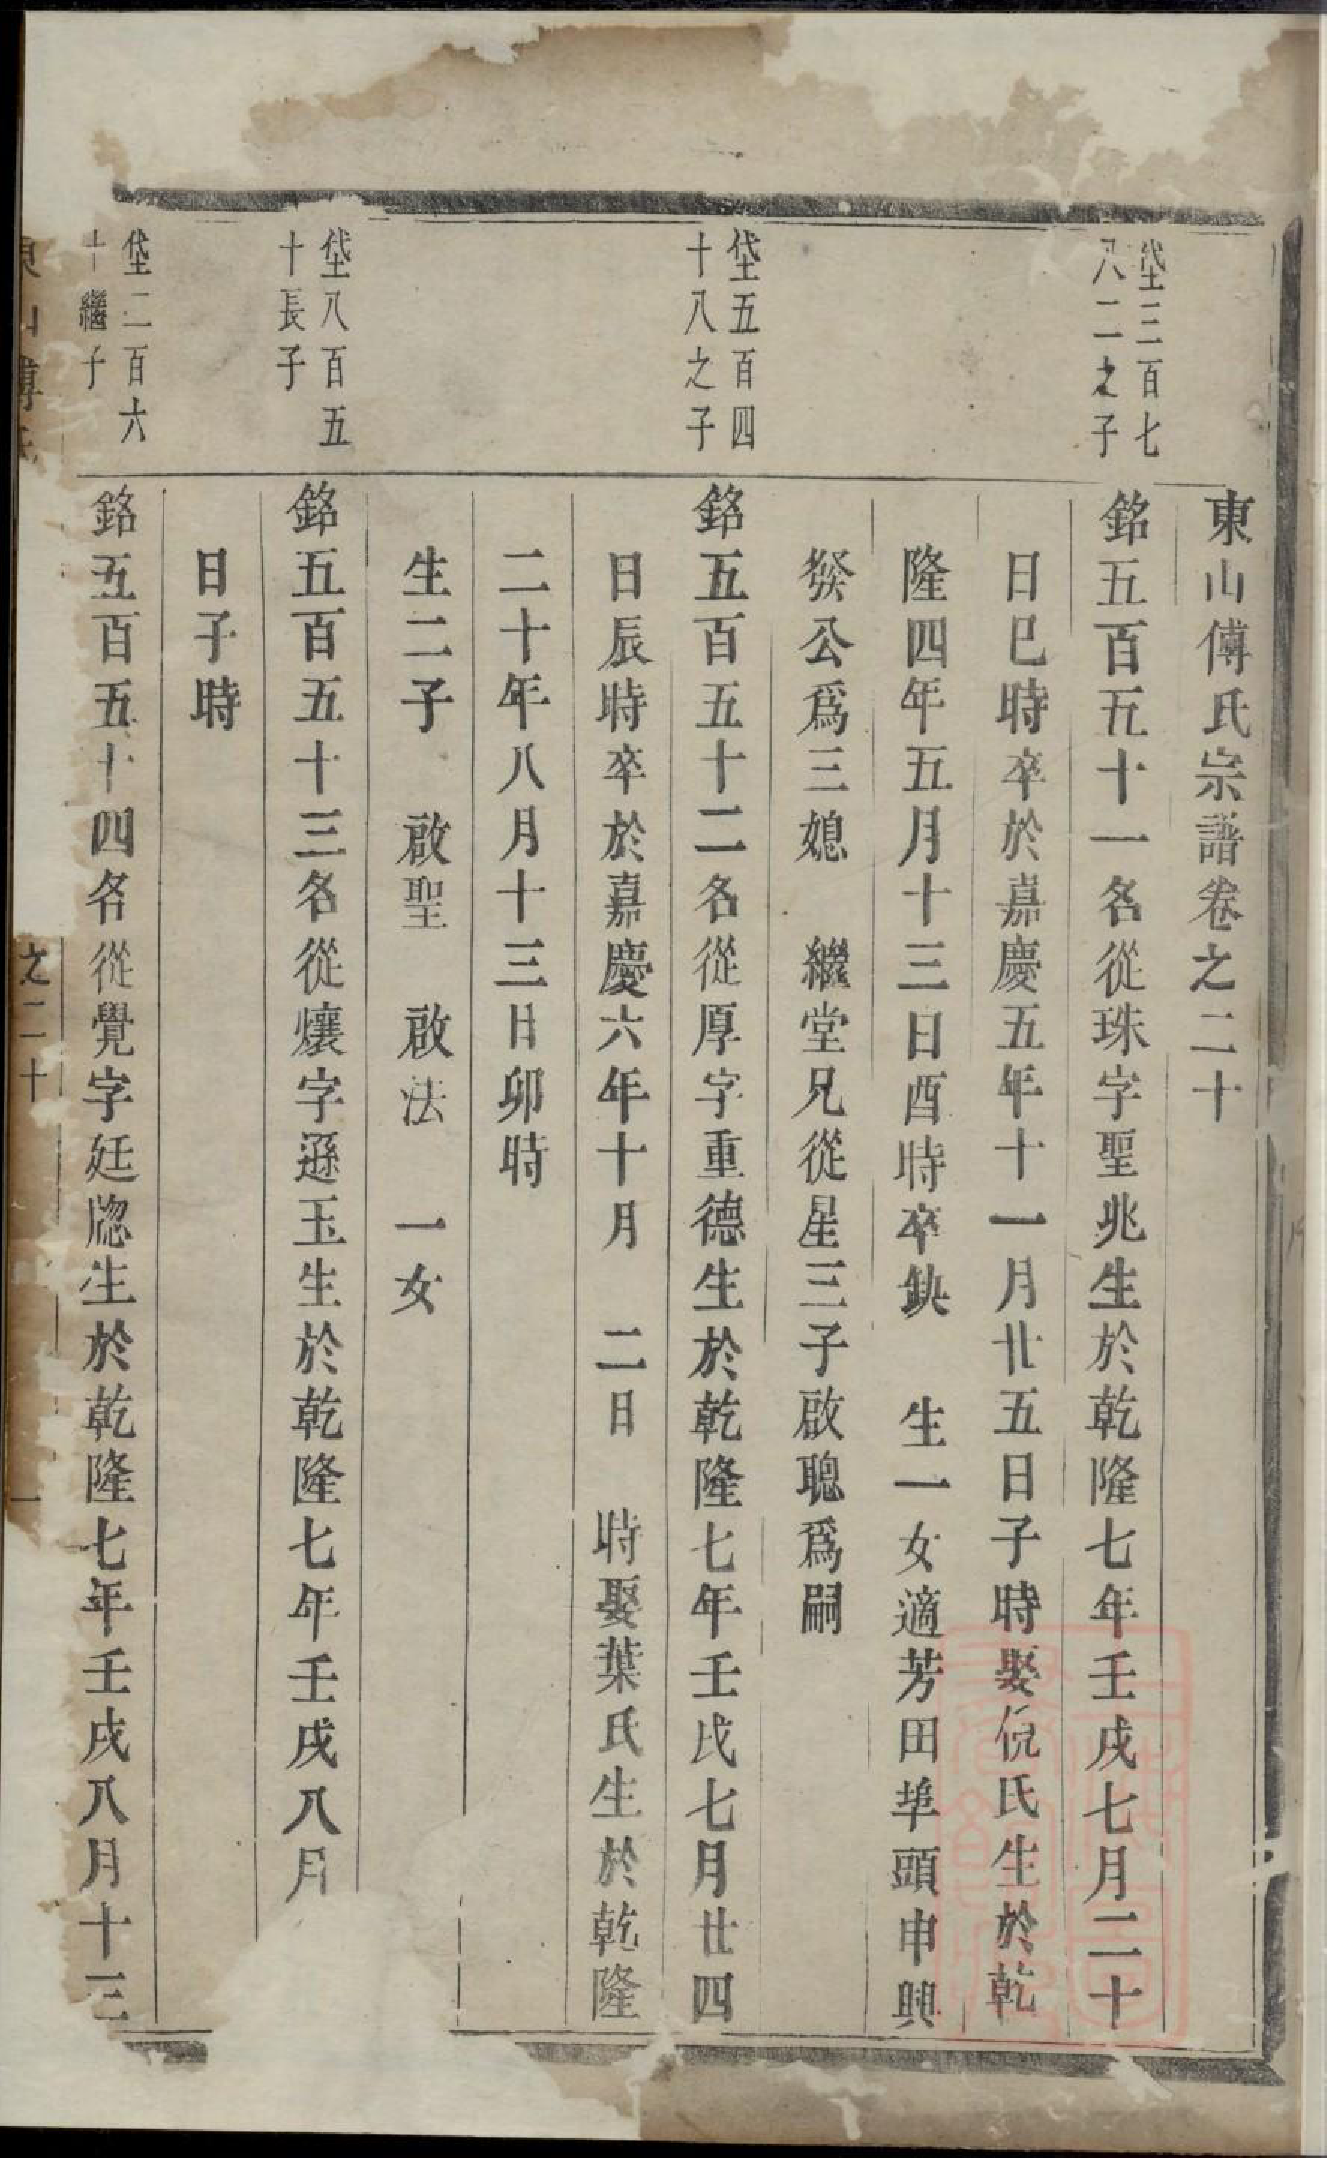 東山傅氏宗譜卷之二十
垡三百七
八二之子
銘五百五十一名從珠字聖兆生於乾隆七年壬戌七月二十
日巳時卒於嘉慶五年十一月廿五日子時娶倪氏生於乾
隆四年五月十三日酉時卒缺 生一女適芳田埠頭申興
發公爲三媳 繼堂兄從星三子啟聰爲嗣
垡五百四
十八之子
銘五百五十二名從厚字重德生於乾隆七年壬戌七月廿四
日辰時卒於嘉慶六年十月 二日 時娶葉氏生於乾隆
二十年八月十三日卯時
生二子 啟聖 啟法 一女
垡八百五
十長子
銘五百五十三名從爙字遜玉生於乾隆七年壬戌八月
日子時
垡二百六
十繼子
銘五百五十四名從覺字廷牎生於乾隆七年壬戌八月十三
東山傅氏
之二十
一